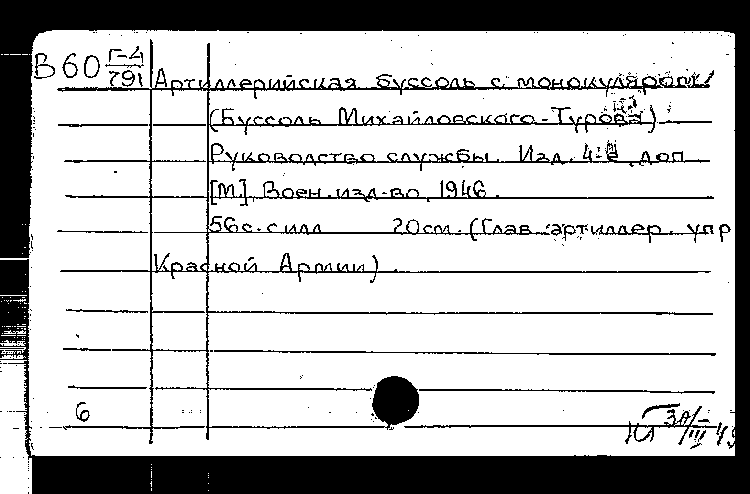 В 60 Г-4/791 Артиллерийская буссоль с монокуляром
(Буссоль Михайловского-Турова)
Руководство службы. Изд. 4-е, доп
[М.], Воен. изд-во, 1946.
56 с. с илл 20 см. (Глав. артиллер. упр
Красной Армии).
6